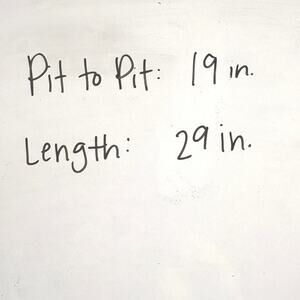 Pit to Pit: 19 in.
Length: 29 in.